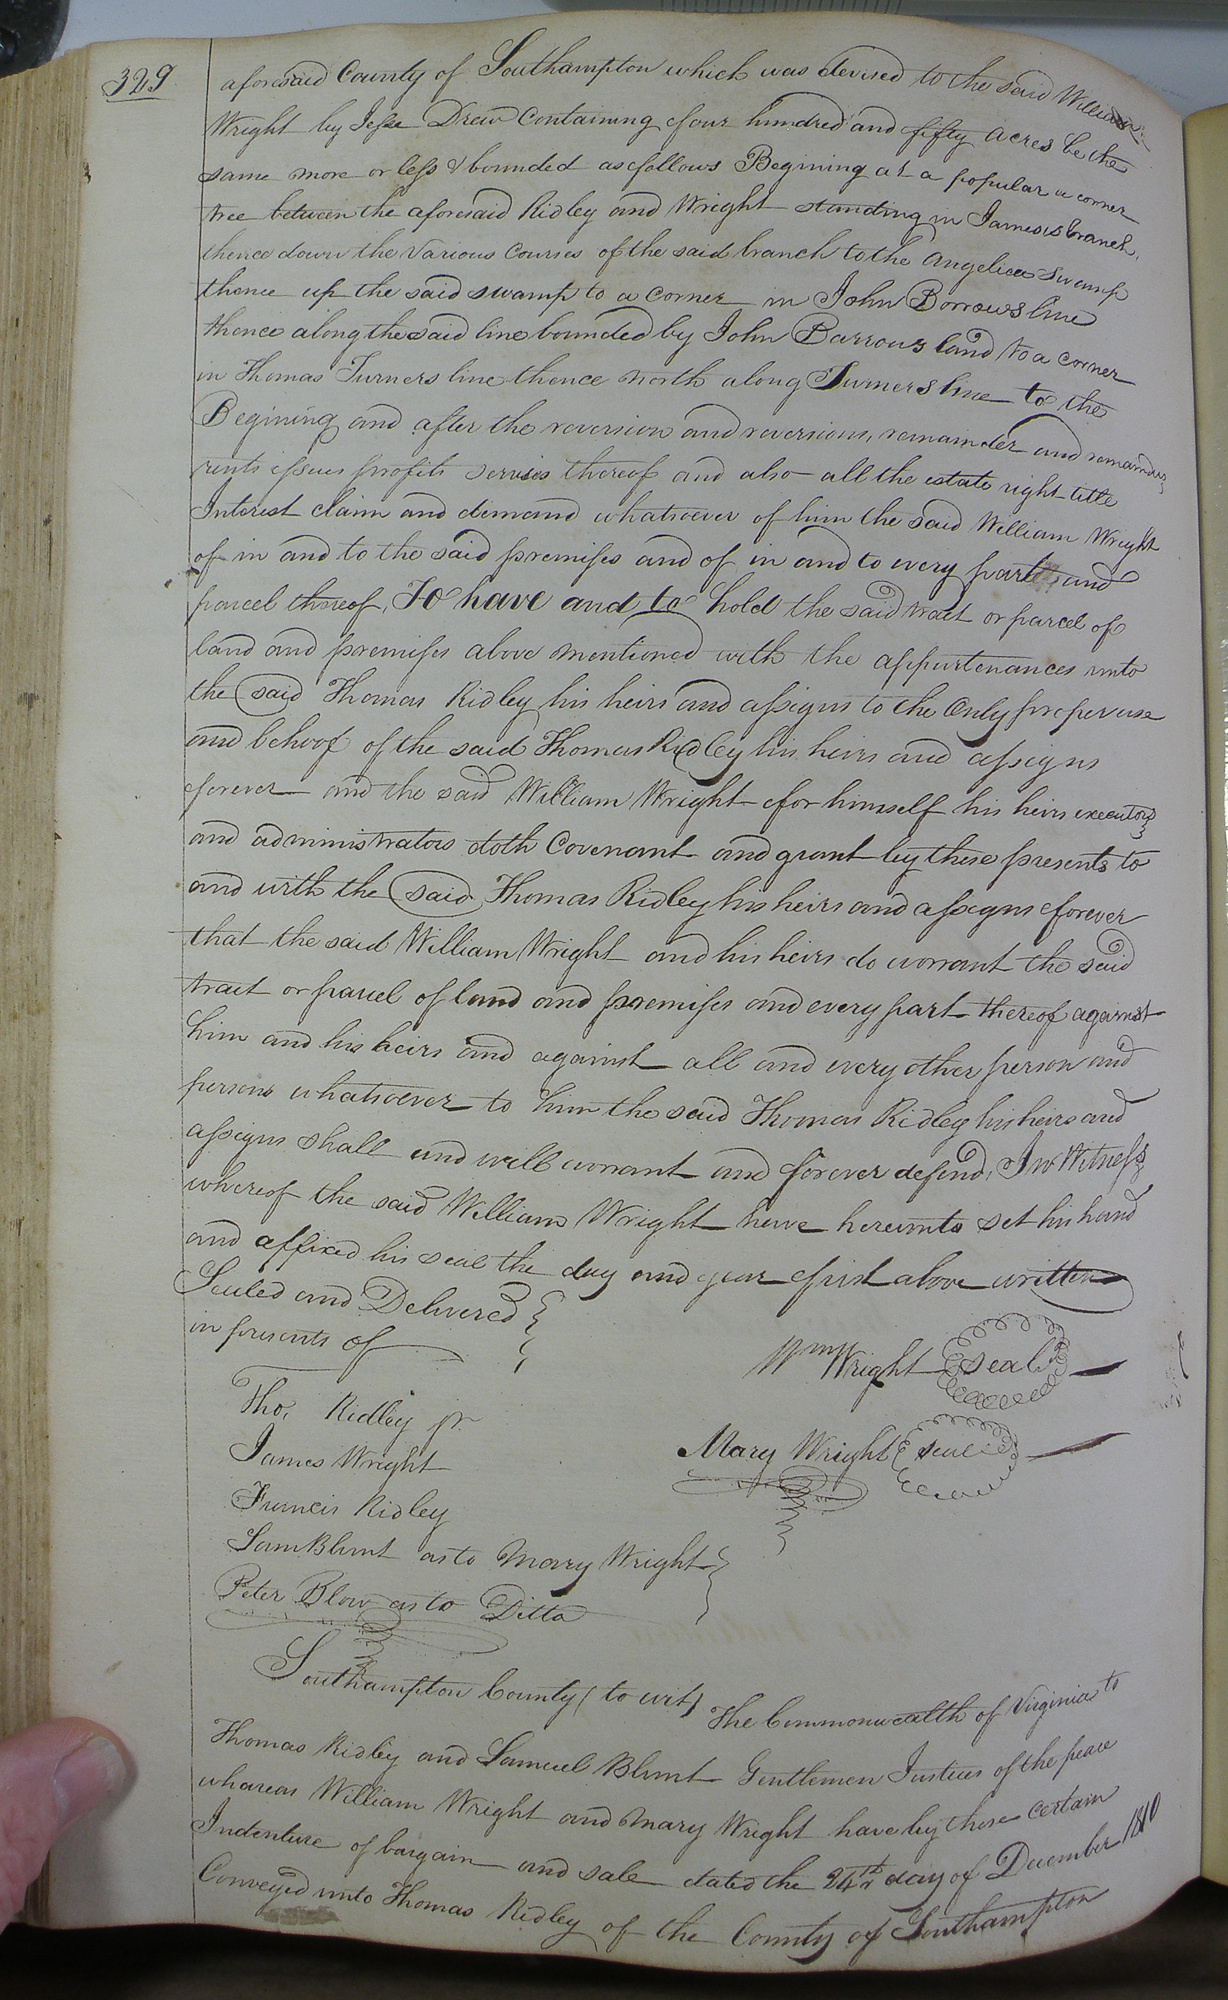 329
aforesaid County of Southampton which was devised to the said William
Wright by Jesse Drew Containing four hundred and fifty acres be the
same more or less & bounded as follows Begining at a popular a corner
tree between the aforesaid Ridley and Wright standing in James's branch,
thence down the Various Courses of the said branch to the Angelica Swamp
thence up the said swamp to a corner in John Borrows line
thence along the said line bounded by John Barrows land to a corner
in Thomas Turners line thence north along Turners line to the
Begining and after the reversion and reversions, remainder and remainders
rents issues profits services thereof and also all the estate right title
Interest claim and demand whatsoever of him the said William Wright
of in and to the said premises and of in and to every part and
parcel thereof, To have and to hold the said tract or parcel of
land and premises above mentioned with the appurtenances unto
the said Thomas Ridley his heirs and assigns to the Only proper use
and behoof of the said Thomas Ridley his heirs and assigns
forever and the said William Wright for himself his heirs executors
and administrators doth Covenant and grant by these presents to
and with the said Thomas Ridley his heirs and assigns forever
that the said William Wright and his heirs do warrant the said
tract or parcel of land and premises and every part thereof against
him and his heirs and against all and every other person and
persons whatsoever to him the said Thomas Ridley his heirs and
assigns shall and will warrant and forever defend, In Witness
whereof the said William Wright have hereunto set his hand
and affixed his seal the day and year first above written
Sealed and Delivered
in presents of
Wm Wright seal
Tho, Ridley jr.
James Wright
Mary Wright seal
Francis Ridley
Sam Blunt as to Mary Wright
Peter Blow as to Ditto
Southampton County (to wit) The Commonwealth of Virginia to
Thomas Ridley and Samuel Blunt Gentlemen Justices of the peace
whareas William Wright and Mary Wright have by there certain
Indenture of bargain and sale dated the 24th day of December 1810
Conveyed unto Thomas Ridley of the County of Southampton